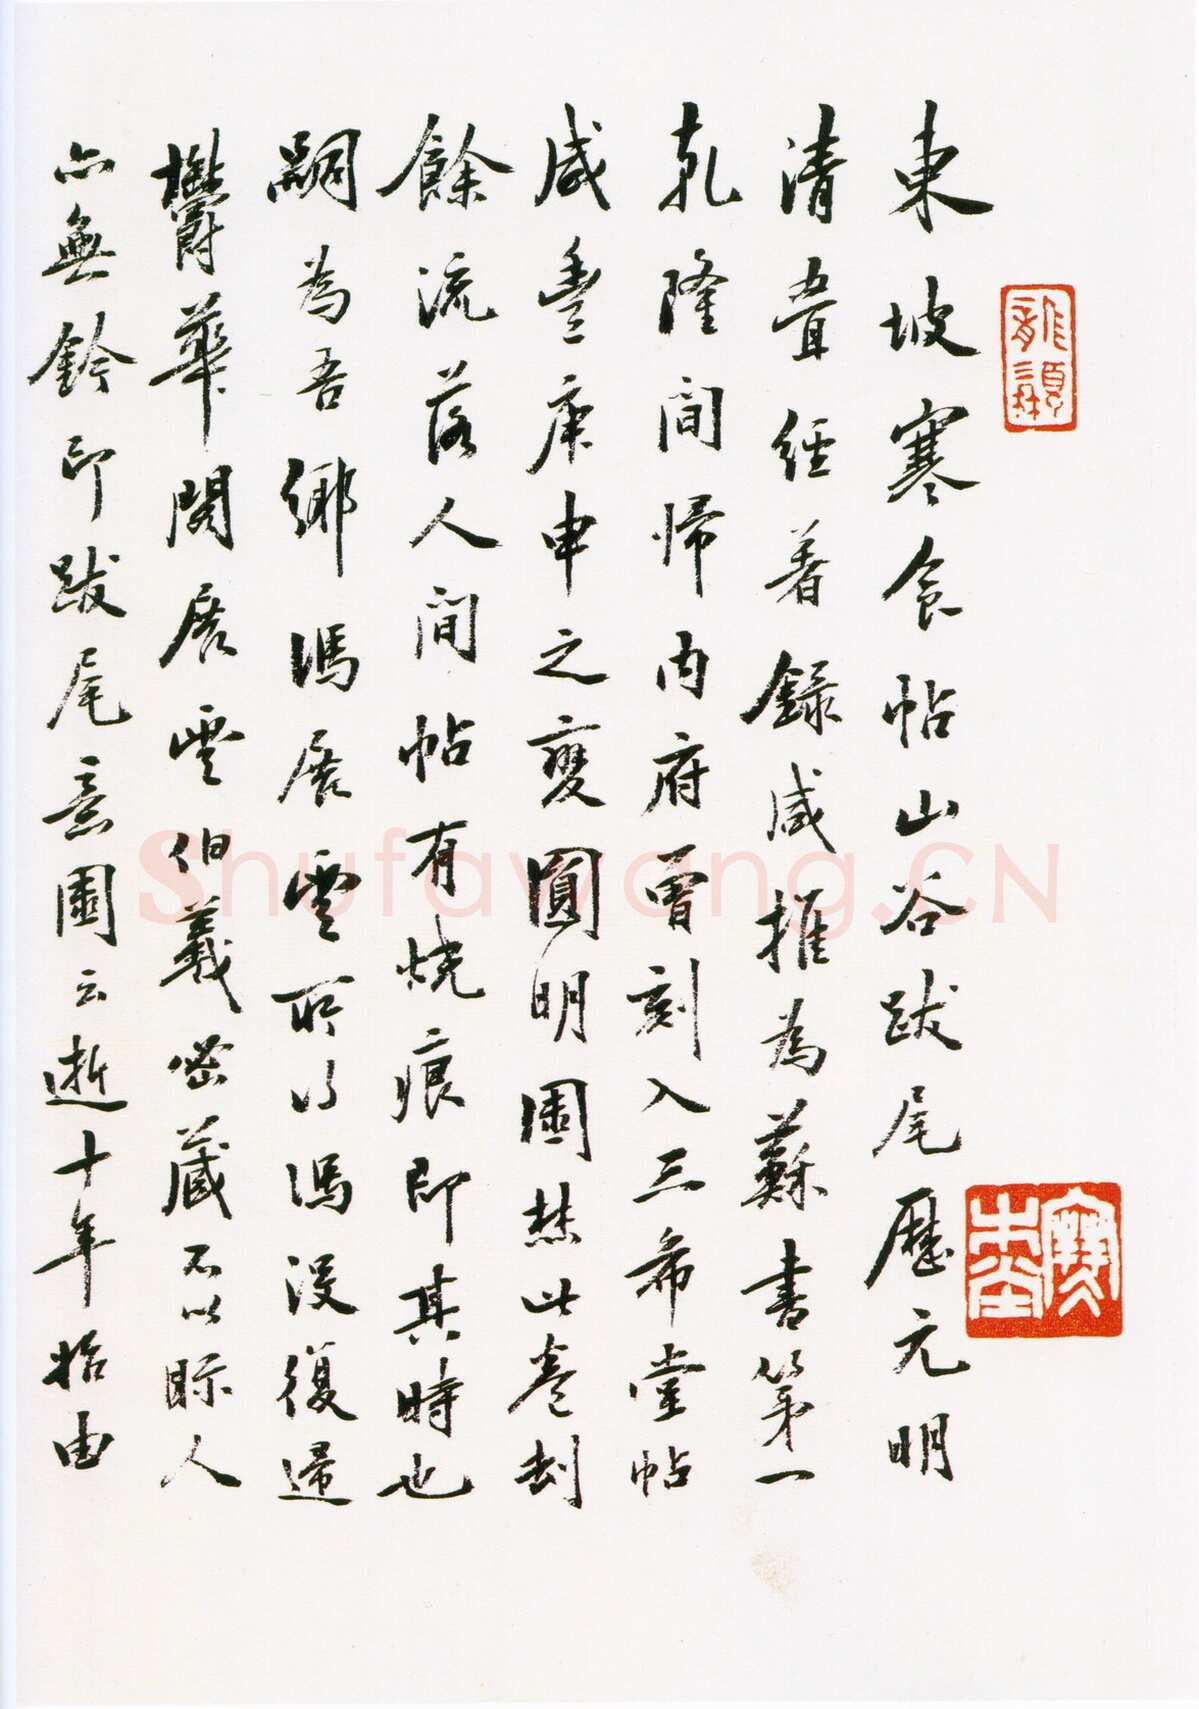 東坡寒食帖山谷跋尾歷元明
清疊經著錄咸推為蘇書第一
乾隆間歸內府曾刻入三希堂帖
咸豐庚申之變圓明園焚此卷刼
餘流落人間帖有燒痕即其時也
嗣為吾鄉馮展雲所得馮沒復歸
鬱華閣展雲伯羲密藏不以眎人
亦無鈐印跋尾意園云逝十年始由
Shufawang.CN